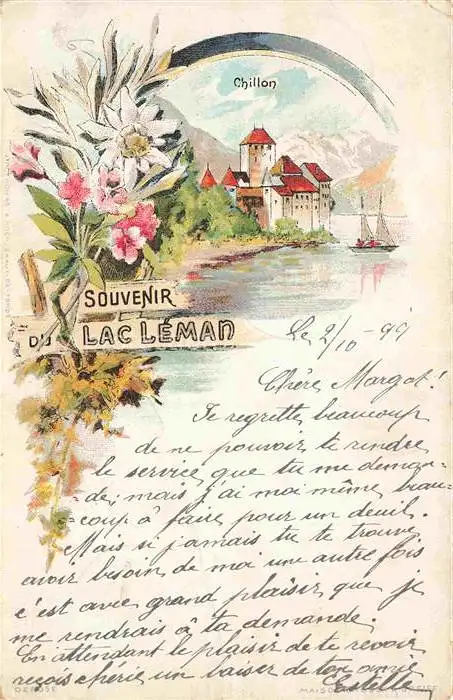 Chillon
SOUVENIR
DU LAC LÉMAN
Le 2/10 - 99
Chère Margot!
Je regrette beaucoup
de ne pouvoir te rendre
le service que tu me deman-
de; mais j'ai moi même beau-
coup à faire pour un deuil.
Mais si jamais tu te trouve
avoir besoin de moi une autre fois
c'est avec grand plaisir que je
me rendrais à ta demande.
En attendant le plaisir de te revoir
reçois chérie un baiser de ton amie
Estelle